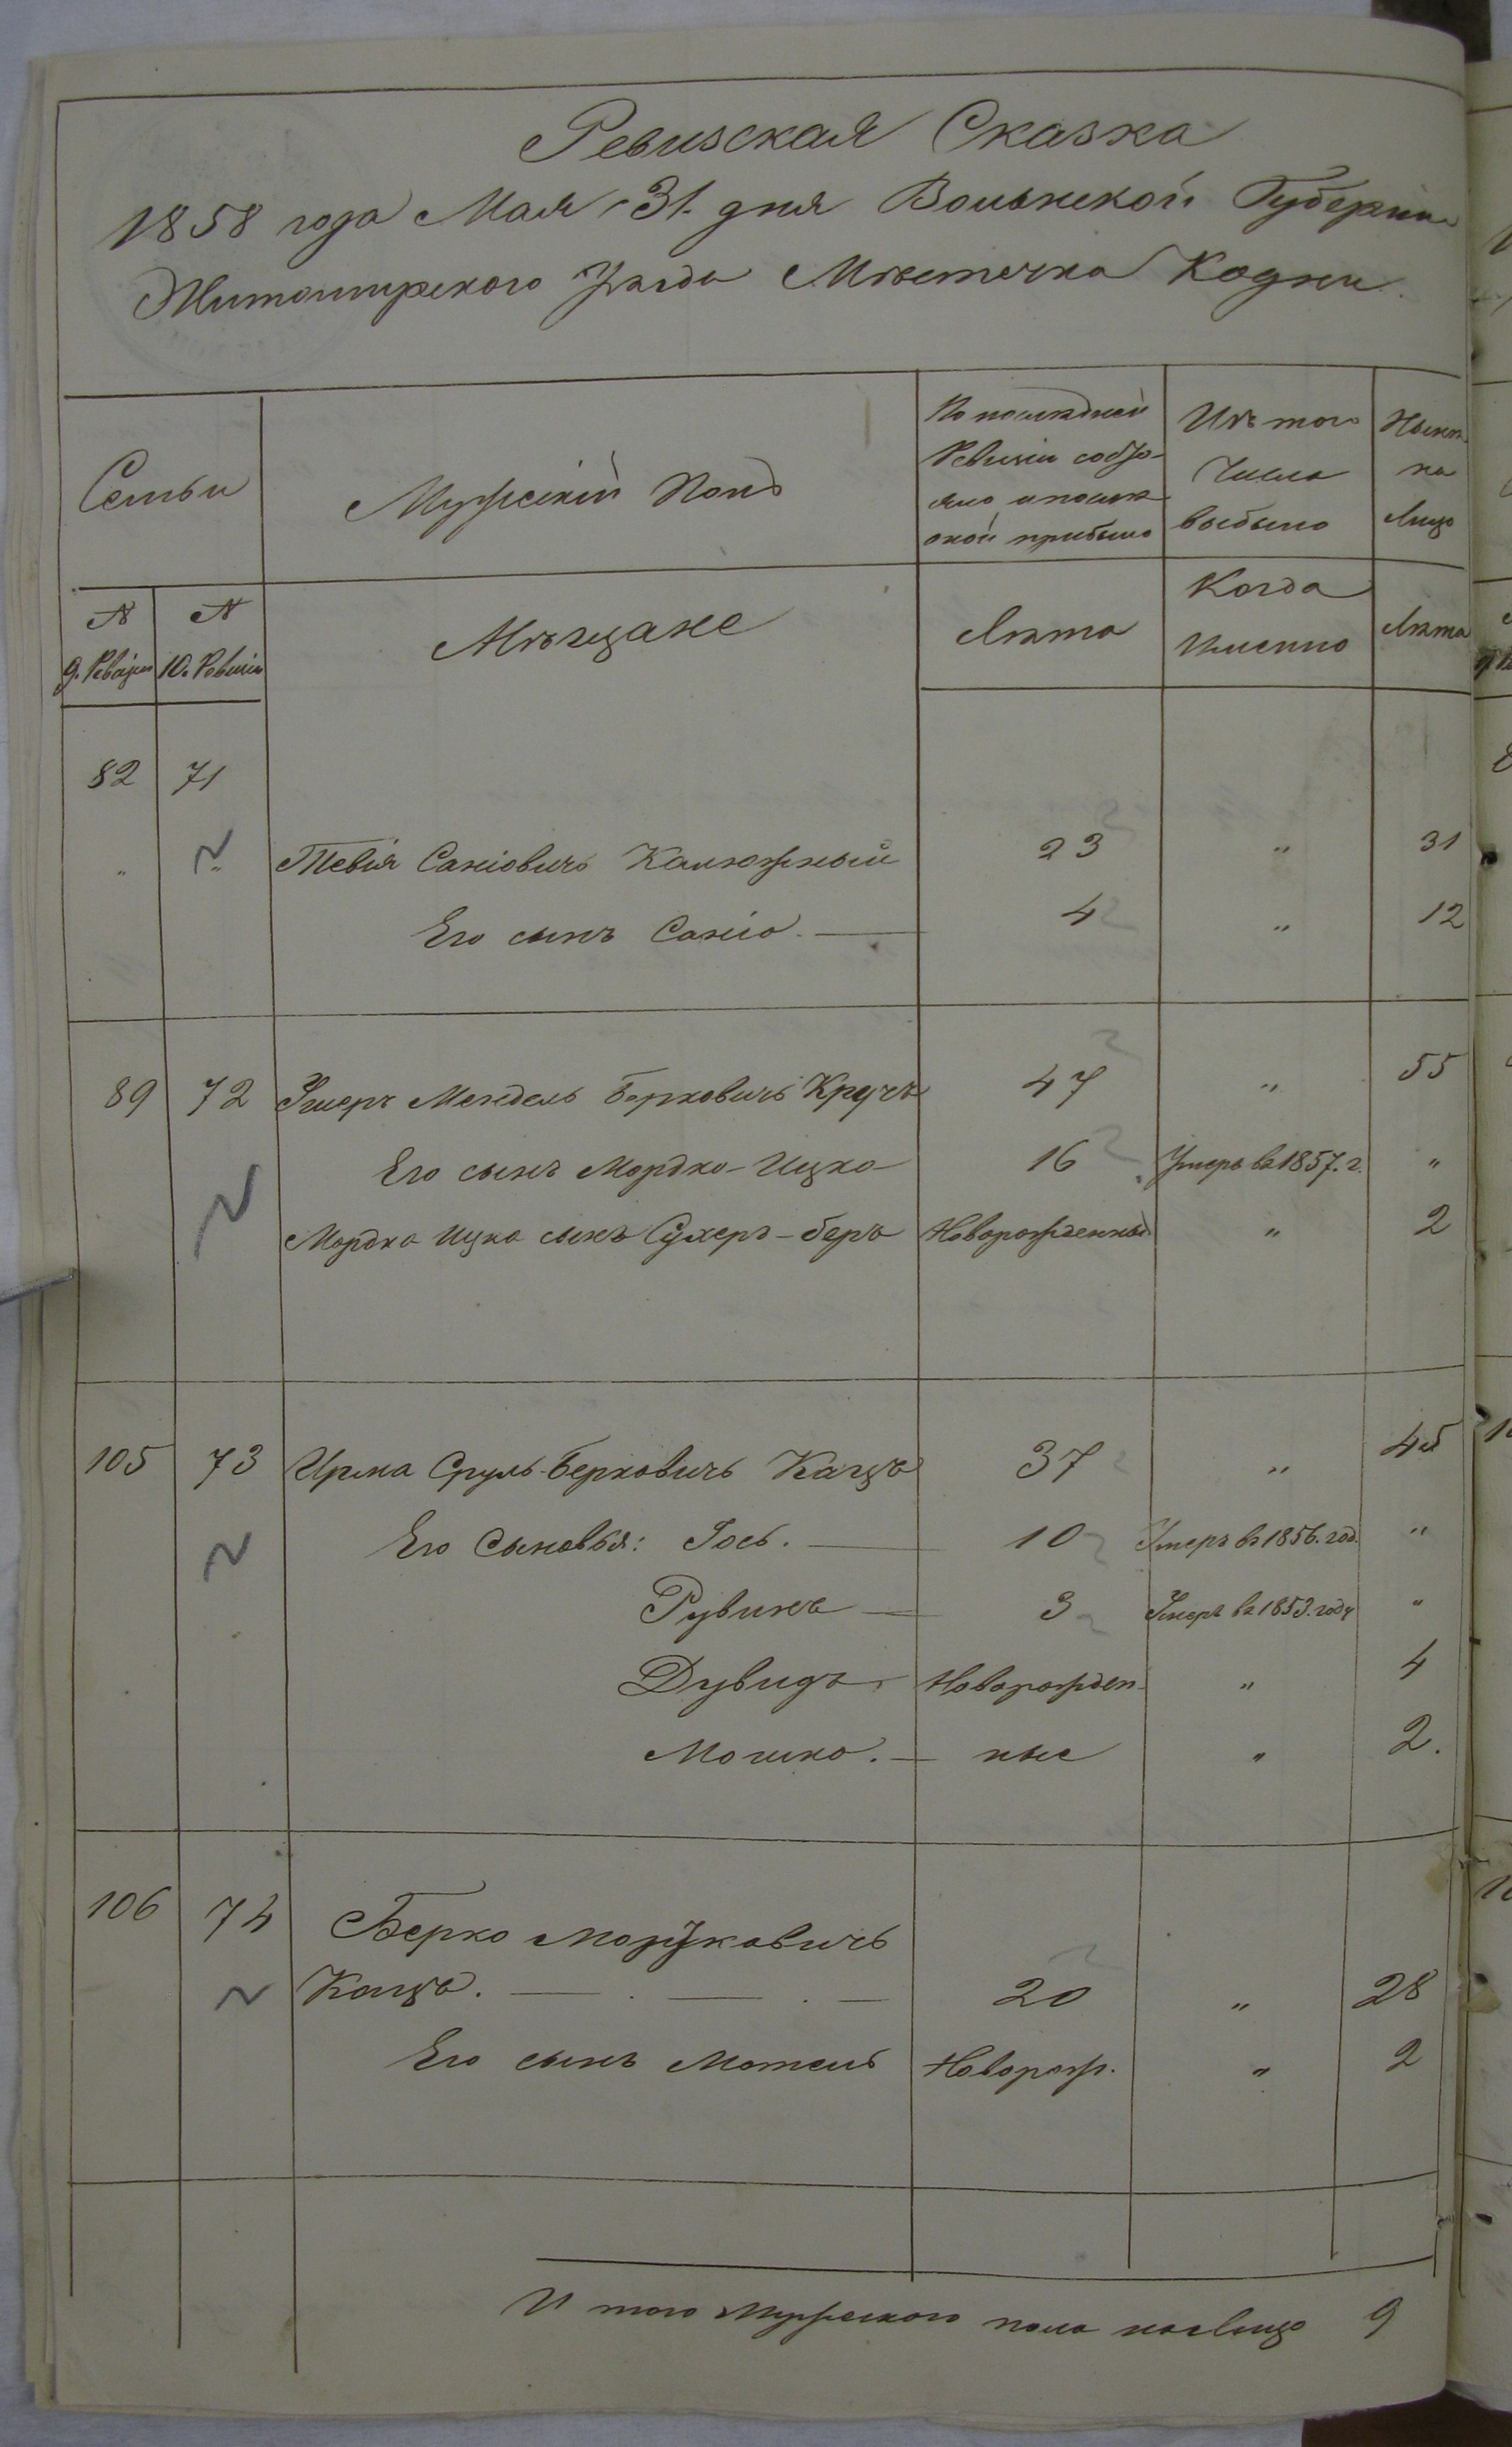 Ревизская Сказка
1858 года Мая 31. дня Волынской Губернии
Житомирского Уезда Местечка Кодни.
Семьи
Мужескій Полъ
По последней Ревизіи состояло и после оной прибыло
Изъ того Числа выбыло
Ныне на Лицо
№ 9. Ревизіи
№ 10. Ревизіи
Мѣщане
Лѣта
Когда Именно
Лѣта
82 71
" " Тевія Саніовичъ Калюжный 23 " 31
Его сынъ Саніо. 4 " 12
89 72 Мендель Берковичъ Кругъ 47 " 55
Его сынъ Мордко-Ицко 16 Умеръ въ 1857. г. "
Мордка Ицка сынъ Сухеръ-беръ Новорожденный " 2
105 73 Ирма Сруль-Берковичъ Кацъ 37 " 45
Его Сыновья: Іось. 10 Умеръ въ 1856. год. "
Рувинъ 3 Умеръ въ 1853. году "
Дувидъ Новорожден- " 4
Мошко. ные " 2.
106 74 Берко Мордковичъ
Кацъ. 20 " 28
Его сынъ Мотель Новорож. " 2
И того Мужеского пола налицо 9